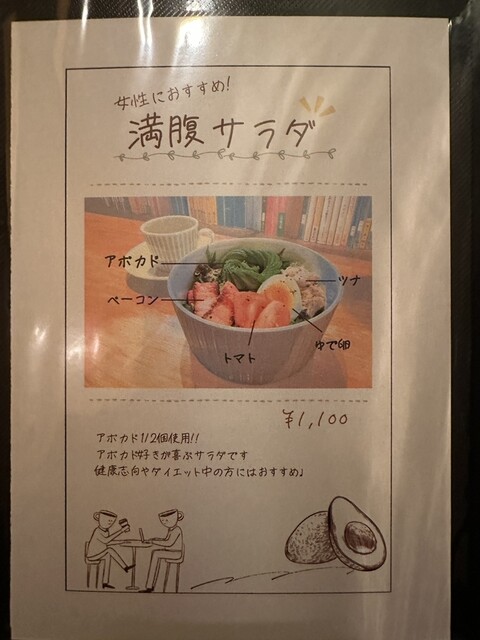 女性におすすめ!
満腹サラダ
アボカド
ツナ
ベーコン
トマト
ゆで卵
¥1,100
アボカド1/2個使用!!
アボカド好きが喜ぶサラダです
健康志向やダイエット中の方にはおすすめ♩